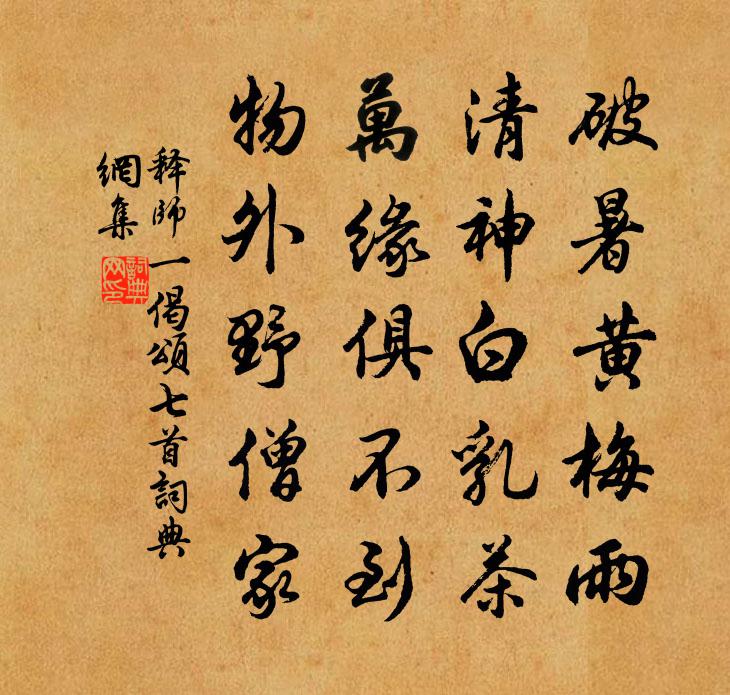 破暑黄梅雨
清神白乳茶
萬緣俱不到
物外野僧家
释師一偈頌七首詞典
網集
詞典
网印